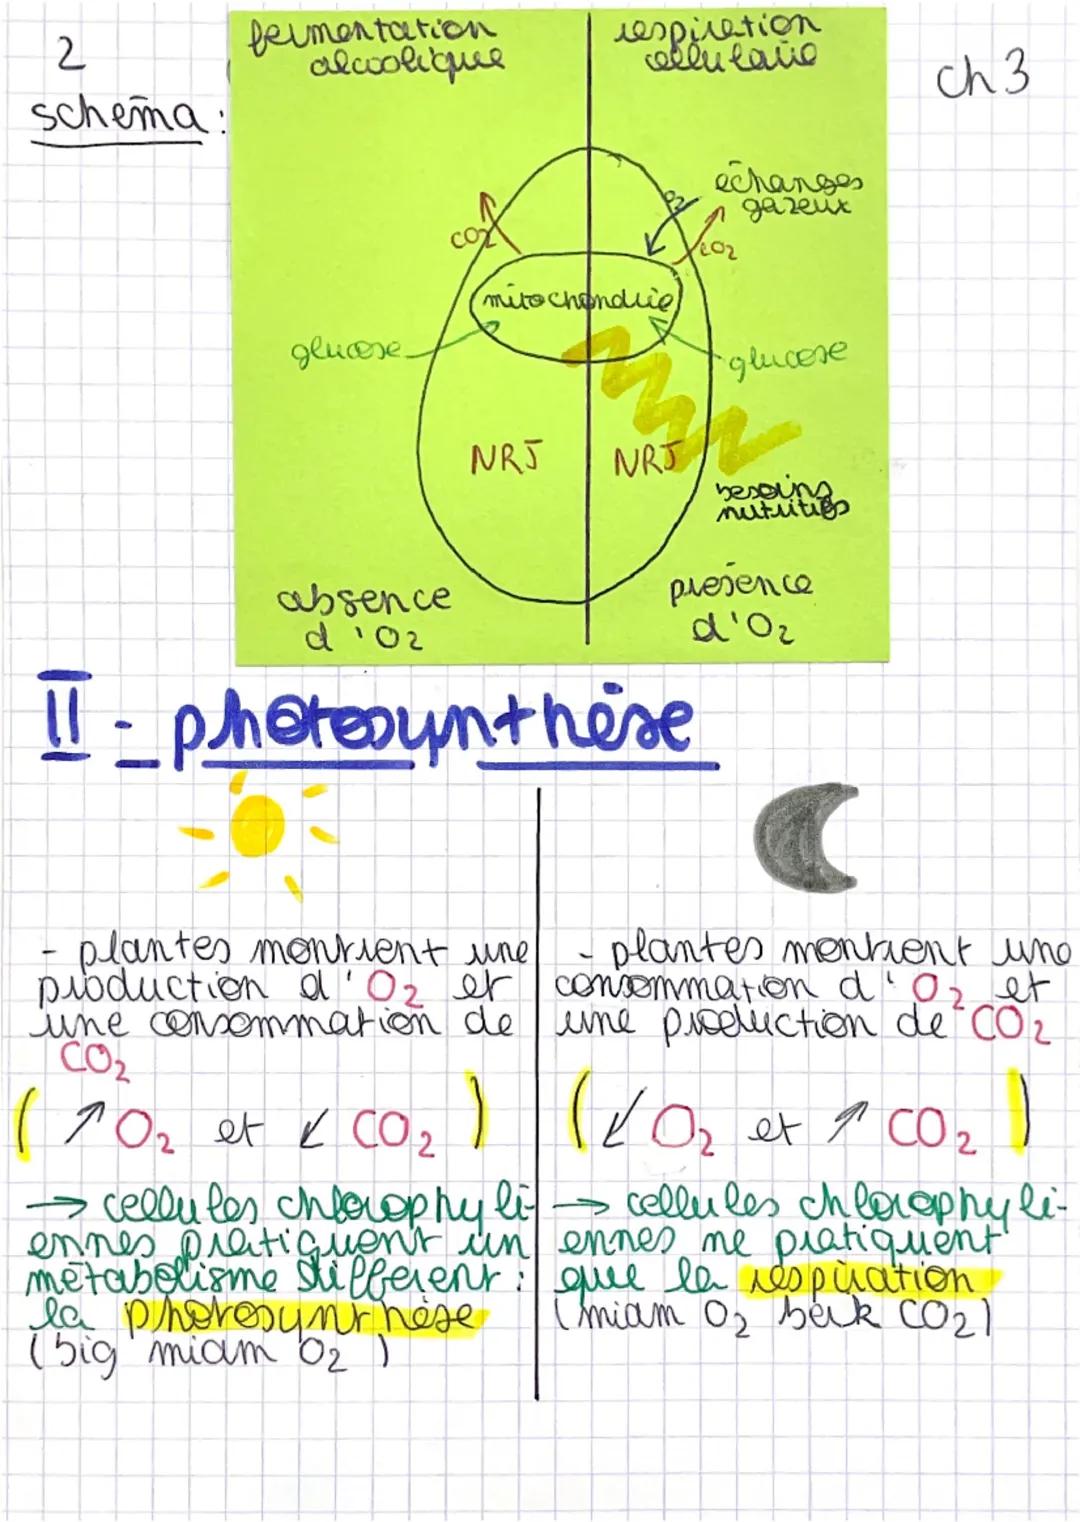 2
schéma :
ch 3
fermentation
alcoolique
respiration
cellulaire
échanges
gazeux
CO2
O2
CO2
mitochondrie
glucose
glucose
NRJ
NRJ
besoins
nutritifs
absence
d'O2
présence
d'O2
II - photosynthèse
- plantes montrent une
production d'O2 et
une consommation de
CO2
( ↗ O2 et ↙ CO2 )
→ cellules chlorophylli-
ennes pratiquent un
métabolisme différent :
la photosynthèse
(big miam O2)
- plantes montrent une
consommation d'O2 et
une production de CO2
( ↙ O2 et ↗ CO2 )
→ cellules chlorophylli-
ennes ne pratiquent
que la respiration
(miam O2 berk CO2)